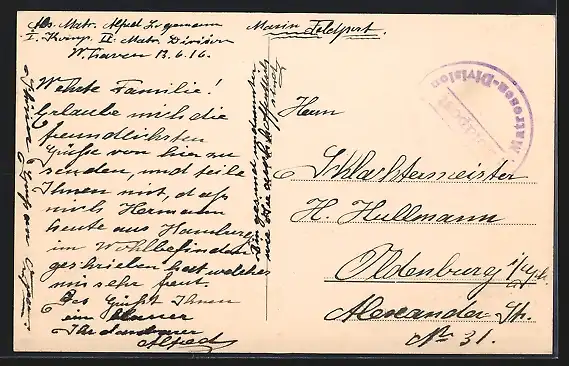 Abs. Matr. Alfred
I. Komp. II. Matr. Division
W'haven 13.6.16.
Marin Feldpost.
Werte Familie!
Erlaube mich die
freundlichsten
Grüße von hier zu
senden, und teile
Ihnen mit, daß
mich Hermann
heute aus Hamburg
im Wohlbefinden
geschrieben hat welches
mir sehr freut.
Es Grüßt Ihnen
ein
Ihr dankbarer
Alfred
Bin gesund und munter
wie
Matrosen-Division
Herrn
Schlachtermeister
H. Hullmann
Oldenburg i/
Alexander Str.
No 31.